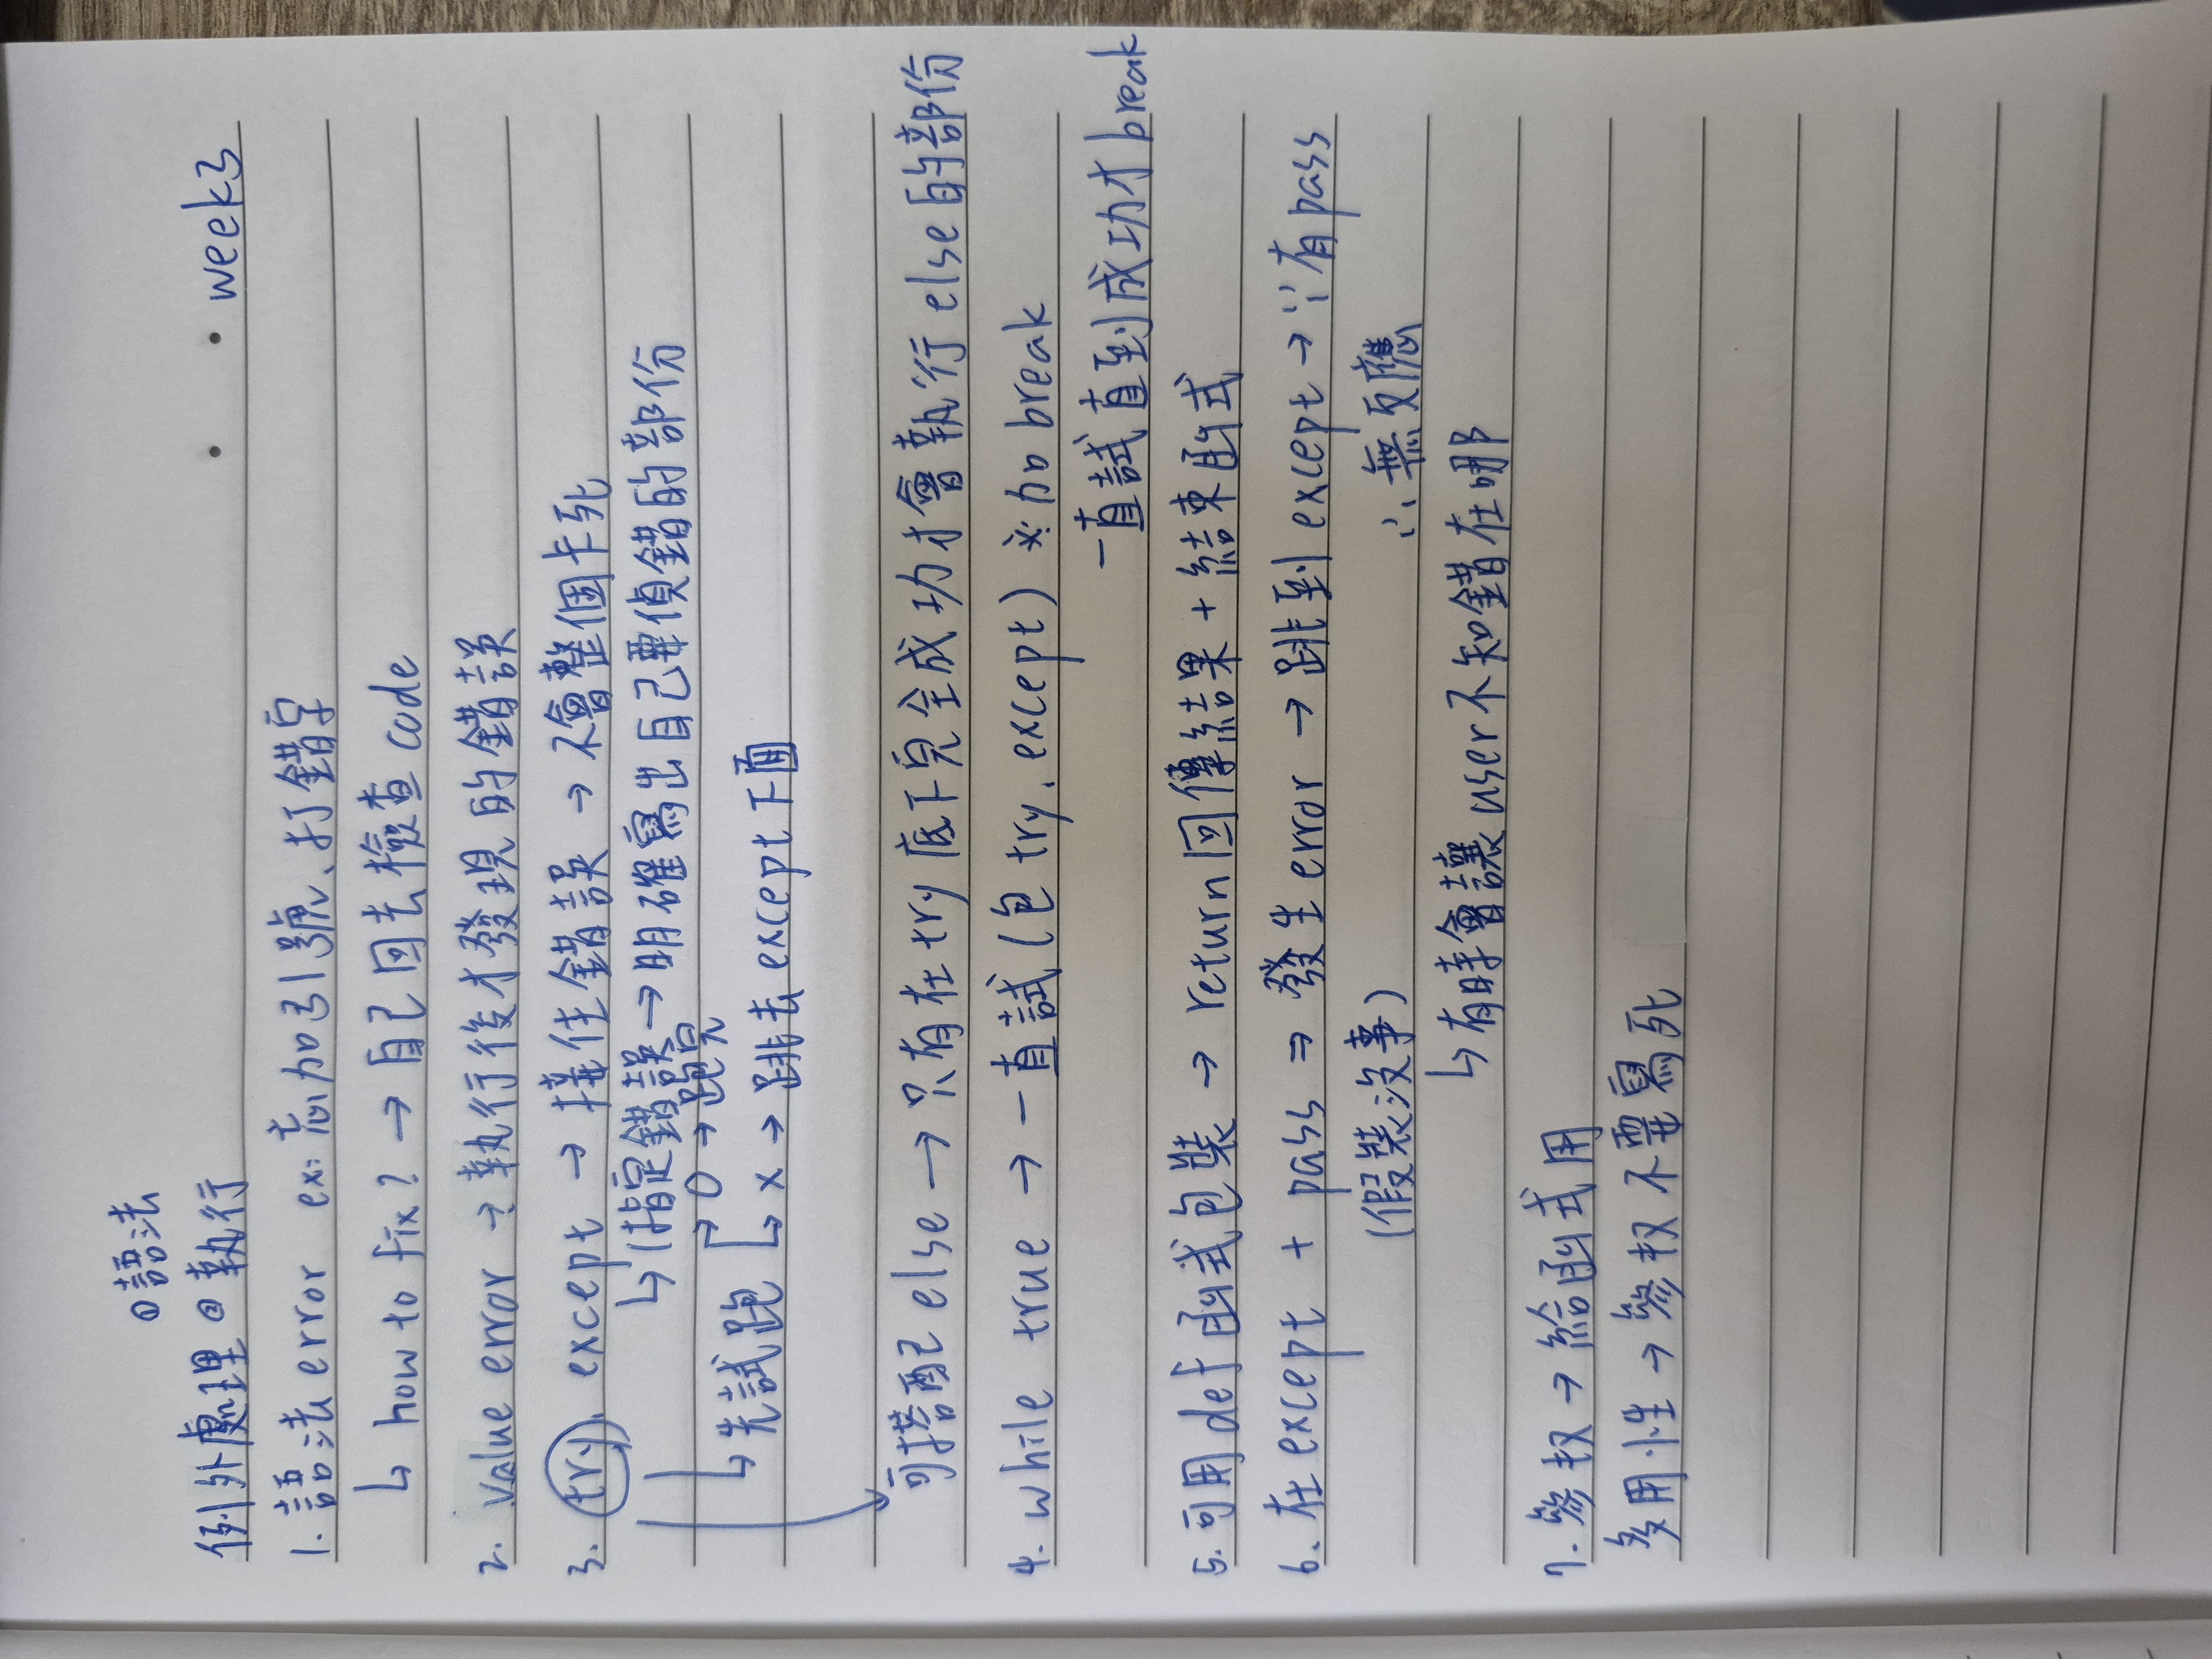 ①語法
例外處理 ②執行
week3
1. 語法 error ex: 忘加引號、打錯字
↳ how to fix? → 自己回去檢查 code
2. value error → 執行後才發現的錯誤
3. try, except → 接住錯誤 → 不會整個卡死
↳ 指定錯誤 → 明確寫出自己要偵錯的部份
→ O → 跑完
↳ 先試跑
↳ x → 跳去 except 下面
可搭配 else → 只有在 try 底下完全成功才會執行 else 的部份
4. while true → 一直試 (包 try, except) ※加 break
一直試直到成功才 break
5. 可用 def 函式包裝 → return 回傳結果 + 結束函式
6. 在 except + pass ⇒ 發生 error → 跳到 except → ∵有 pass
(假裝沒事) ∴ 無反應
↳ 有時會讓 user 不知錯在哪
7. 參权 → 給函式用
多用性 → 參权不要寫死